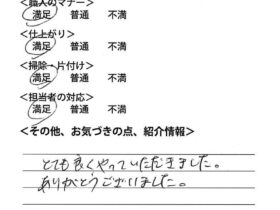 <職人のマナー>
満足 普通 不満
<仕上がり>
満足 普通 不満
<掃除・片付け>
満足 普通 不満
<担当者の対応>
満足 普通 不満
<その他、お気づきの点、紹介情報>
とても良くやっていただきました。
ありがとうございました。